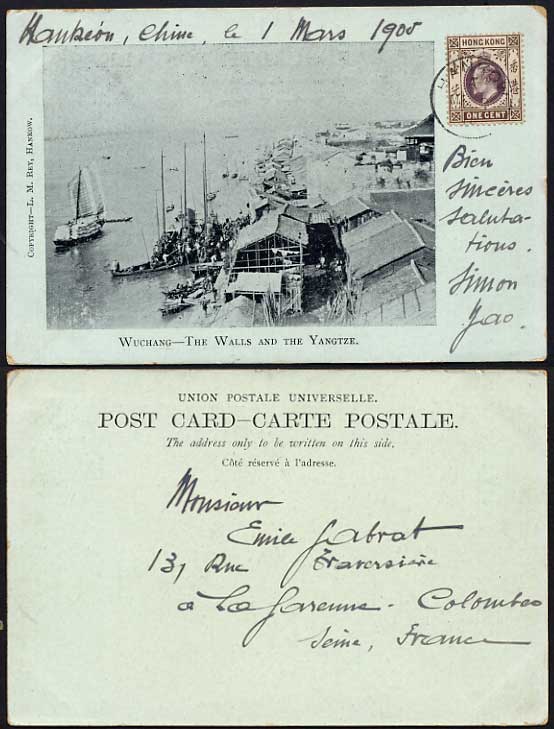 Hankéou, Chine, le 1 Mars 1905
HONG KONG
香港
ONE CENT
Bien
sincères
saluta-
tions.
Simon
Yao.
COPYRIGHT—L. M. REY, HANKOW.
WUCHANG—THE WALLS AND THE YANGTZE.
UNION POSTALE UNIVERSELLE.
POST CARD—CARTE POSTALE.
The address only to be written on this side.
Côté réservé à l'adresse.
Monsieur
Emile Gabrat
131 Rue Traversière
à La Garenne-Colombes
Seine, France